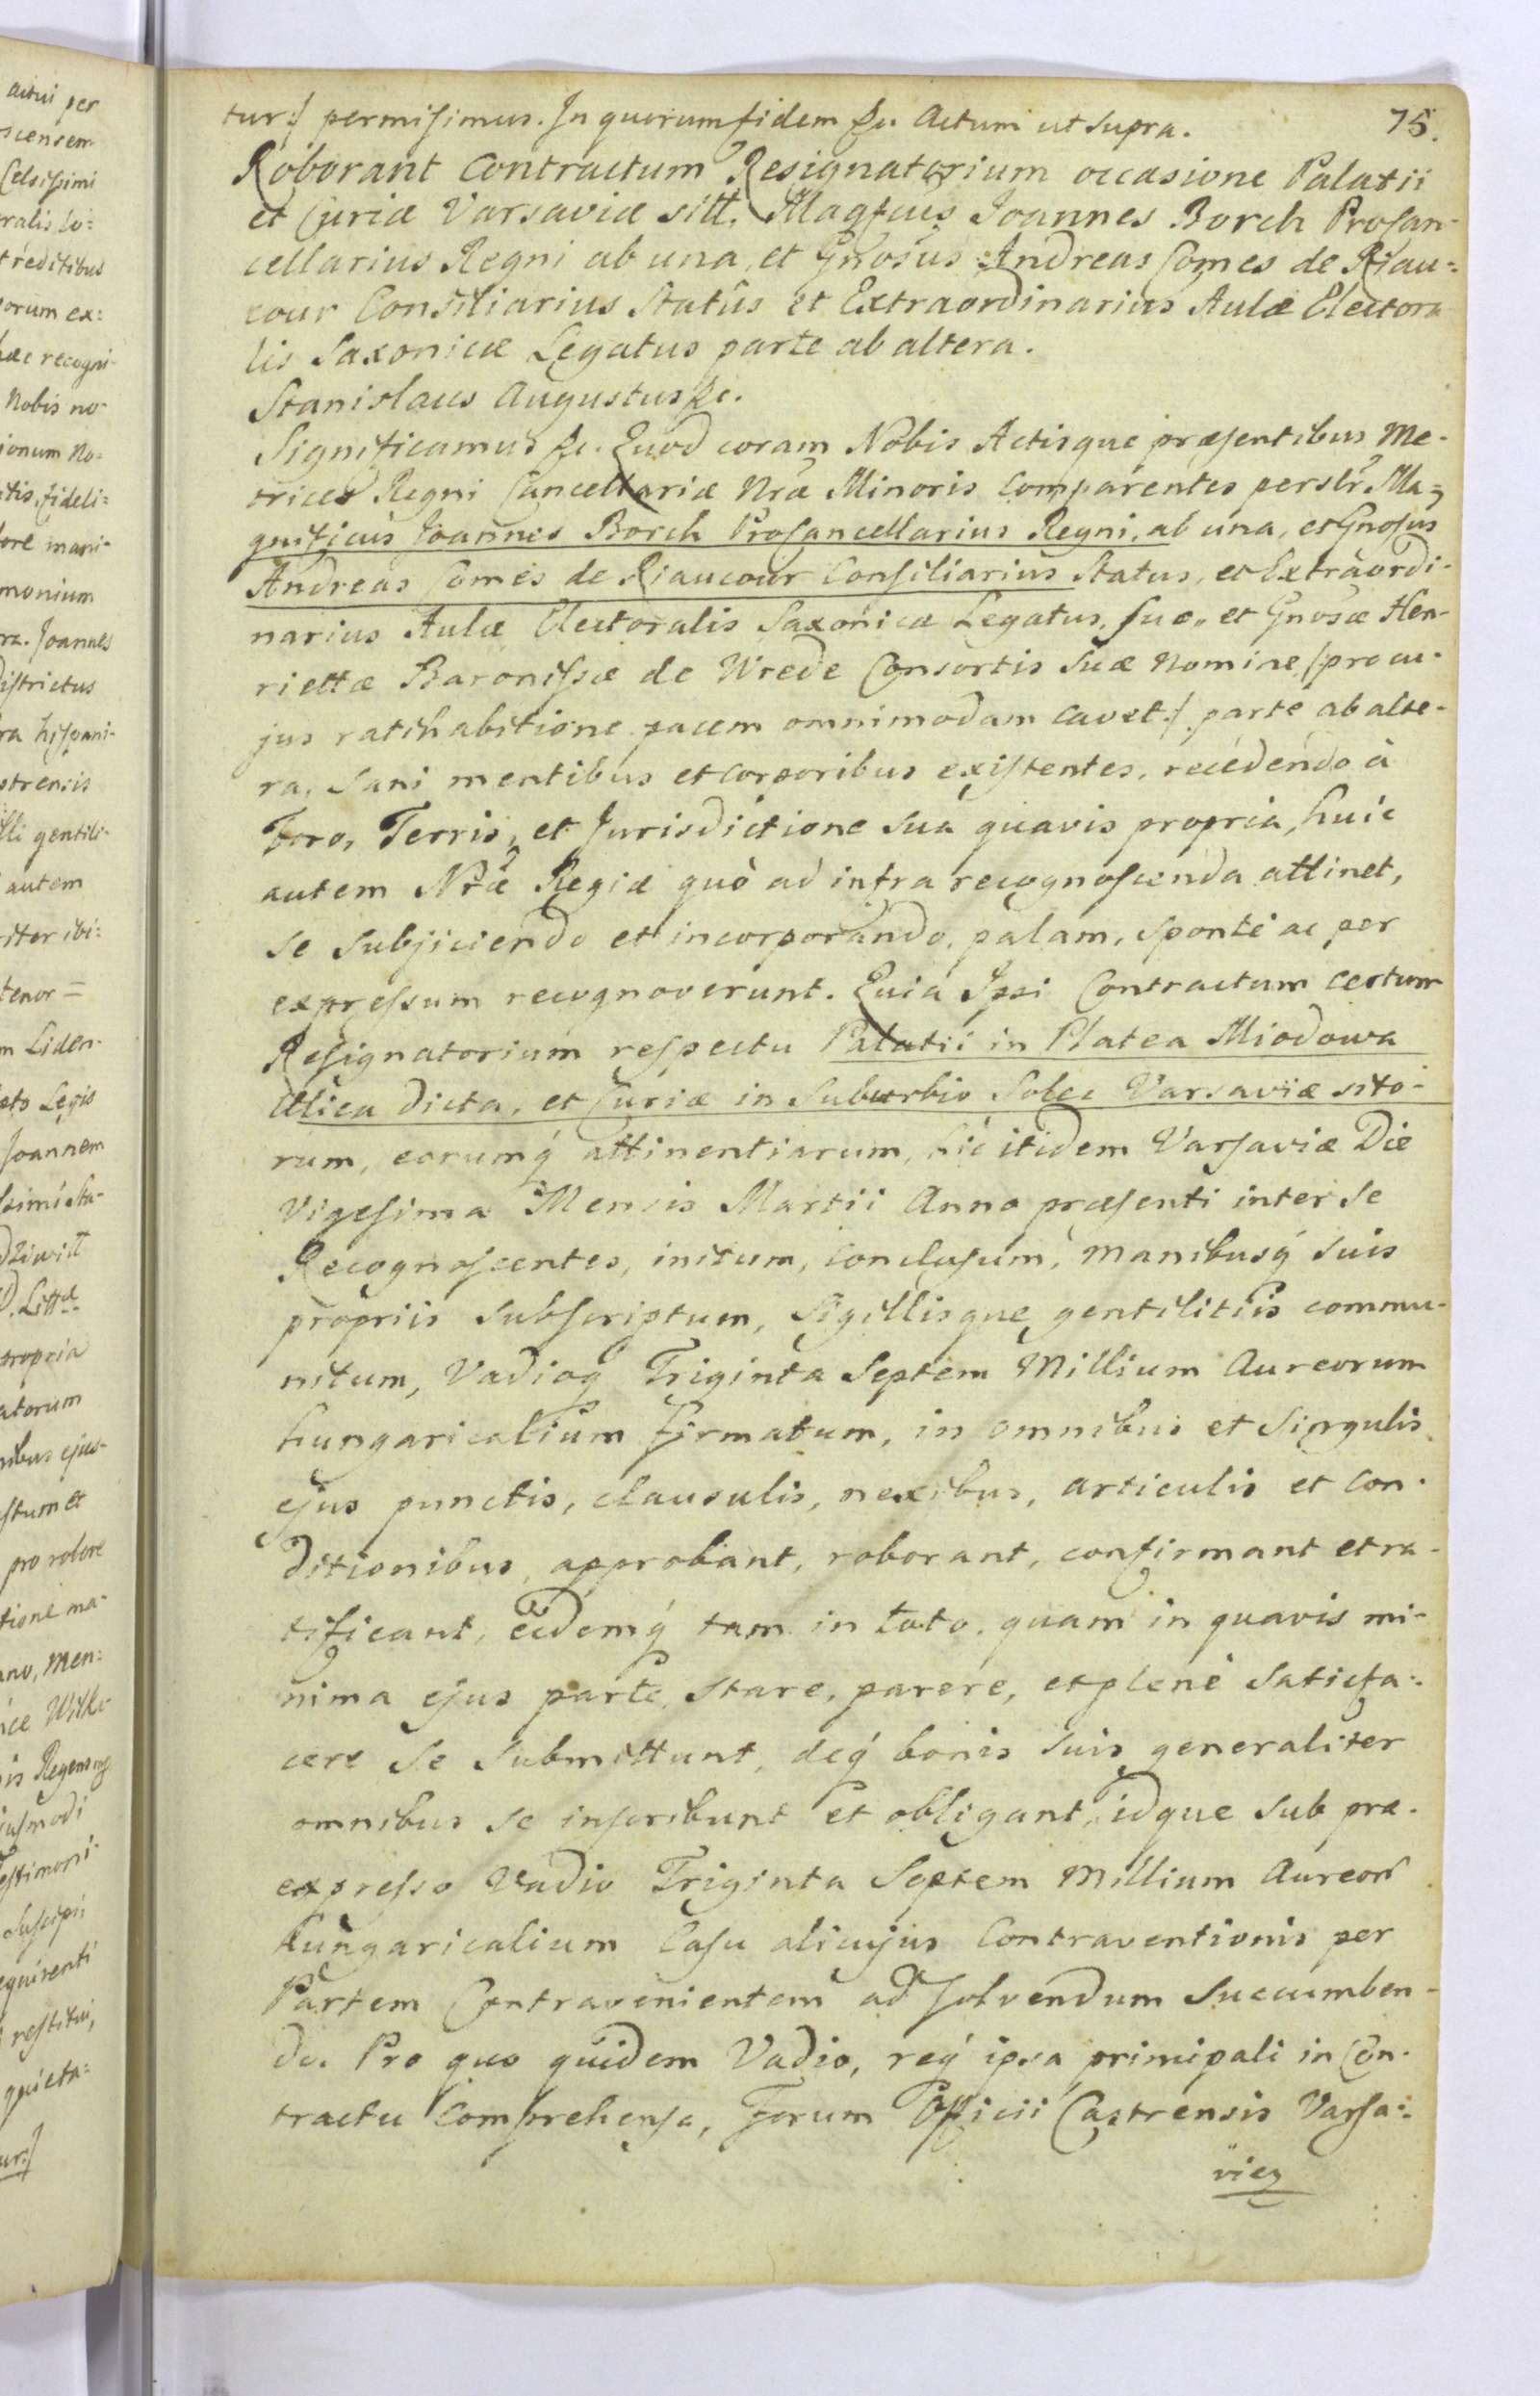 75.
tur:/ permisimus. In quorum fidem &c. Actum ut supra.
Roborant Contractum Resignatorium occasione Palatii
et Curiæ Varsaviæ sitt. Magfcus Joannes Borch ProCan-
cellarius Regni ab una, et Gnosus Andreas Comes de Riau-
cour Consiliarius Statûs et Extraordinarius Aulæ Electora
lis Saxonicæ Legatus parte ab altera.
Stanislaus Augustus &c.
Significamus &c. Quod coram Nobis Actisque præsentibus Me-
trices Regni Cancellariæ Nræ Minoris Comparentes perslr Ma-
gnificus Joannes Borch ProCancellarius Regni, ab una, et Gnosus
Andreas Comes de Riaucour Consiliarius Status, et Extraordi-
narius Aulæ Electoralis Saxonicæ Legatus, suo, et Gnosæ Hen-
riettæ Baronissæ de Wrede Consortis Suæ nomine /:pro cu-
jus ratihabitione pacem omnimodam cavet:/ parte ab alte-
ra, Sani mentibus et corporibus existentes, recedendo à
Foro, Terris, et Jurisdictione sua quavis propria, huic
autem Nræ Regiæ quò ad infra recognoscenda attinet,
se subjiciendo et incorporando, palam, sponte ac per
expressum recognoverunt. Quia Ipsi Contractum certum
Resignatorium respectu Palatii in Platea Miodowa
Ulica dicta, et Curiæ in Suburbio Solec Varsaviæ sito-
rum, eorumq́ attinentiarum, hic itidem Varsaviæ Die
Vigesima Mensis Martii Anno præsenti inter Se
Recognoscentes, initum, conclusum, manibusq́ suis
propriis subscriptum, Sigillisque gentilitiis commu-
nitum, Vadioq́ Triginta Septem Millium Aureorum
hungaricalium firmatum, in omnibus et Singulis
ejus punctis, clausulis, nexibus, articulis et con-
ditionibus, approbant, roborant, confirmant et ra-
tificant, eidemq́ tam in toto, quam in quavis mi-
nima ejus parte, stare, parere, et plenè satisfa-
cere se submittunt, deq́ bonis suis generaliter
omnibus se inscribunt et obligant, idque sub præ-
expresso Vadio Triginta Septem Millium Aureor̃
hungaricalium Casu alicujus Contraventionis per
Partem Contravenientem ad solvendum Succumben-
do. Pro quo quidem Vadio, req́ ipsa principali in Con-
tractu Comprehensa, Forum Officii Castrensis Varsa-
vien